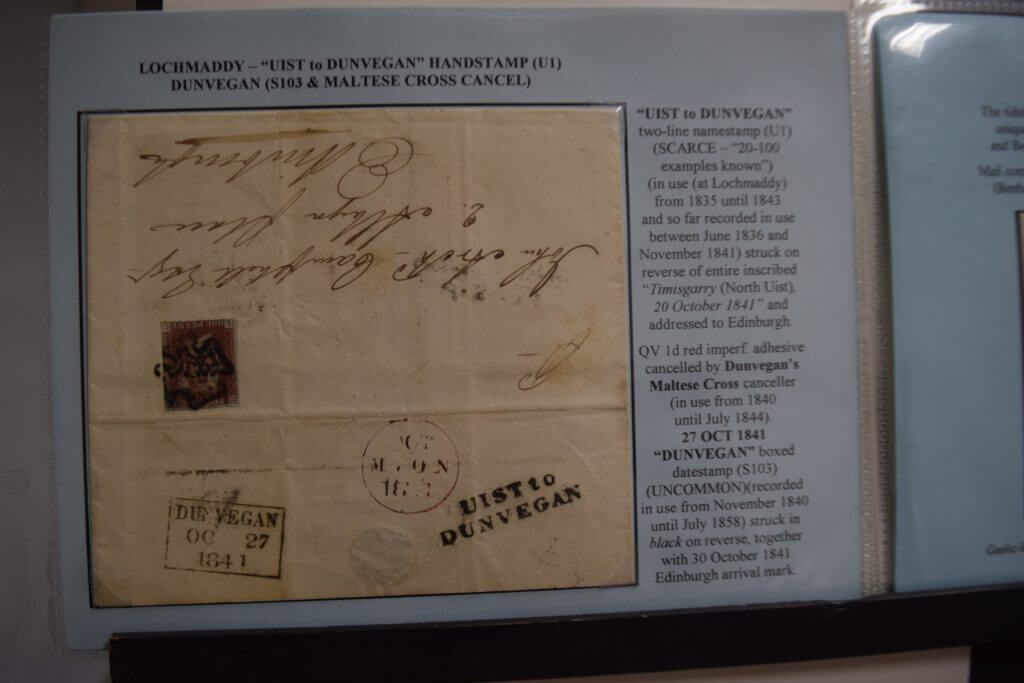 LOCHMADDY – “UIST to DUNVEGAN” HANDSTAMP (U1)
DUNVEGAN (S103 & MALTESE CROSS CANCEL)
“UIST to DUNVEGAN”
two-line namestamp (U1)
(SCARCE – “20-100
examples known”)
(in use (at Lochmaddy)
from 1835 until 1843
and so far recorded in use
between June 1836 and
November 1841) struck on
reverse of entire inscribed
“Timisgarry (North Uist),
20 October 1841” and
addressed to Edinburgh.
QV 1d red imperf. adhesive
cancelled by Dunvegan’s
Maltese Cross canceller
(in use from 1840
until July 1844).
27 OCT 1841
“DUNVEGAN” boxed
datestamp (S103)
(UNCOMMON)(recorded
in use from November 1840
until July 1858) struck in
black on reverse, together
with 30 October 1841
Edinburgh arrival mark.
John Campbell Esqr
2. Place
Edinburgh
ONE PENNY
OCT
UIST to
DUNVEGAN
DUNVEGAN
OC 27
1841
The tidal
and Be
Mail